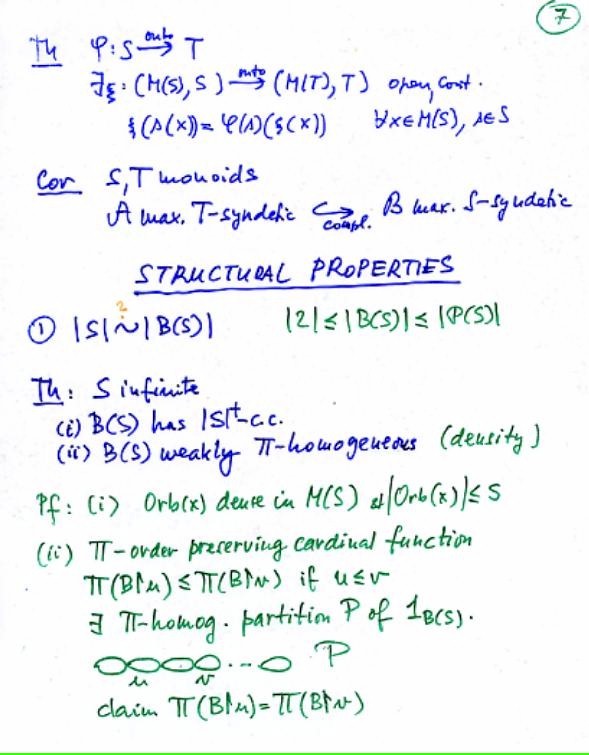 7
Th φ: S onto→ T
∃ξ: (M(S), S) onto→ (M(T), T) open, cont.
ξ(s(x)) = φ(s)(ξ(x)) ∀x∈M(S), s∈S
Cor S, T monoids
A max. T-syndetic ↪ compl. B max. S-syndetic
STRUCTURAL PROPERTIES
① |S| ~? |B(S)| |2| ≤ |B(S)| ≤ |P(S)|
Th: S infinite
(i) B(S) has |S|⁺-c.c.
(ii) B(S) weakly π-homogeneous (density)
Pf: (i) Orb(x) dense in M(S) & |Orb(x)| ≤ S
(ii) π-order preserving cardinal function
π(B↾u) ≤ π(B↾v) if u ≤ v
∃ π-homog. partition P of 1_B(S).
... P
u v
claim π(B↾u) = π(B↾v)